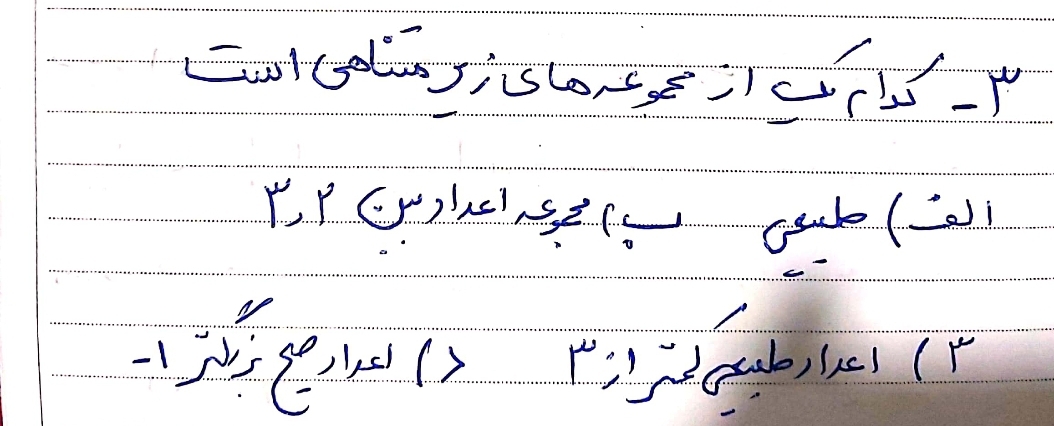 ۳- کدام یک از مجموعه های زیر متناهی است
الف) طبیعی ب) مجموعه اعداد بین ۲ و ۳
۳) اعداد طبیعی کمتر از ۳ د) اعداد صحیح بزرگتر ۱-